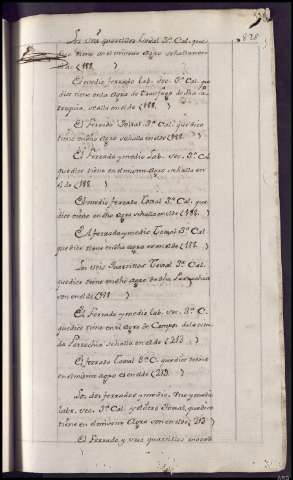 828
Los seis quartillos Tomal 3.ª Cal. que
dice tiene en el mismo Agro se halla
en el (188. )
El medio ferrado lab. sec. 3.ª Cal. que
dice tiene en la Agra de de dha Pa
rroquia, se alla en el do (188. )
El Ferrado Tomal 3.ª Cal. que dice
tiene en dho Agro se halla en el do (188. )
El Ferrado y medio Lab. sec. 3.ª Ca.
que dice tiene en el mismo Agro se halla en
el do (188. )
El medio ferrado Tomal 3.ª Cal. que
dice tiene en dho Agro se halla en el do (188. )
El ferrado y medio Tomal 3.ª Cal.
que dice tiene en dho Agro es en el do (188. )
Los seis quartillos Tomal 3.ª Cal.
que dice tiene en dho Agro de dha Parrochia
son en el do (188 )
El Ferrado y medio lab. sec. 3.ª C.
que dice tiene en el Agro de Campos de la mis
ma Parrochia se halla en el do (213 )
El ferrado Tomal 3.ª C. que dice tiene
en el mismo Agro es en el do (213. )
Los dos ferrados y medio, Uno y medio
labr. sec. 3.ª Cal. y el otro Tomal, que dice
tiene en el mismo Agro son en el do (213 )
El Ferrado y seis quartillos